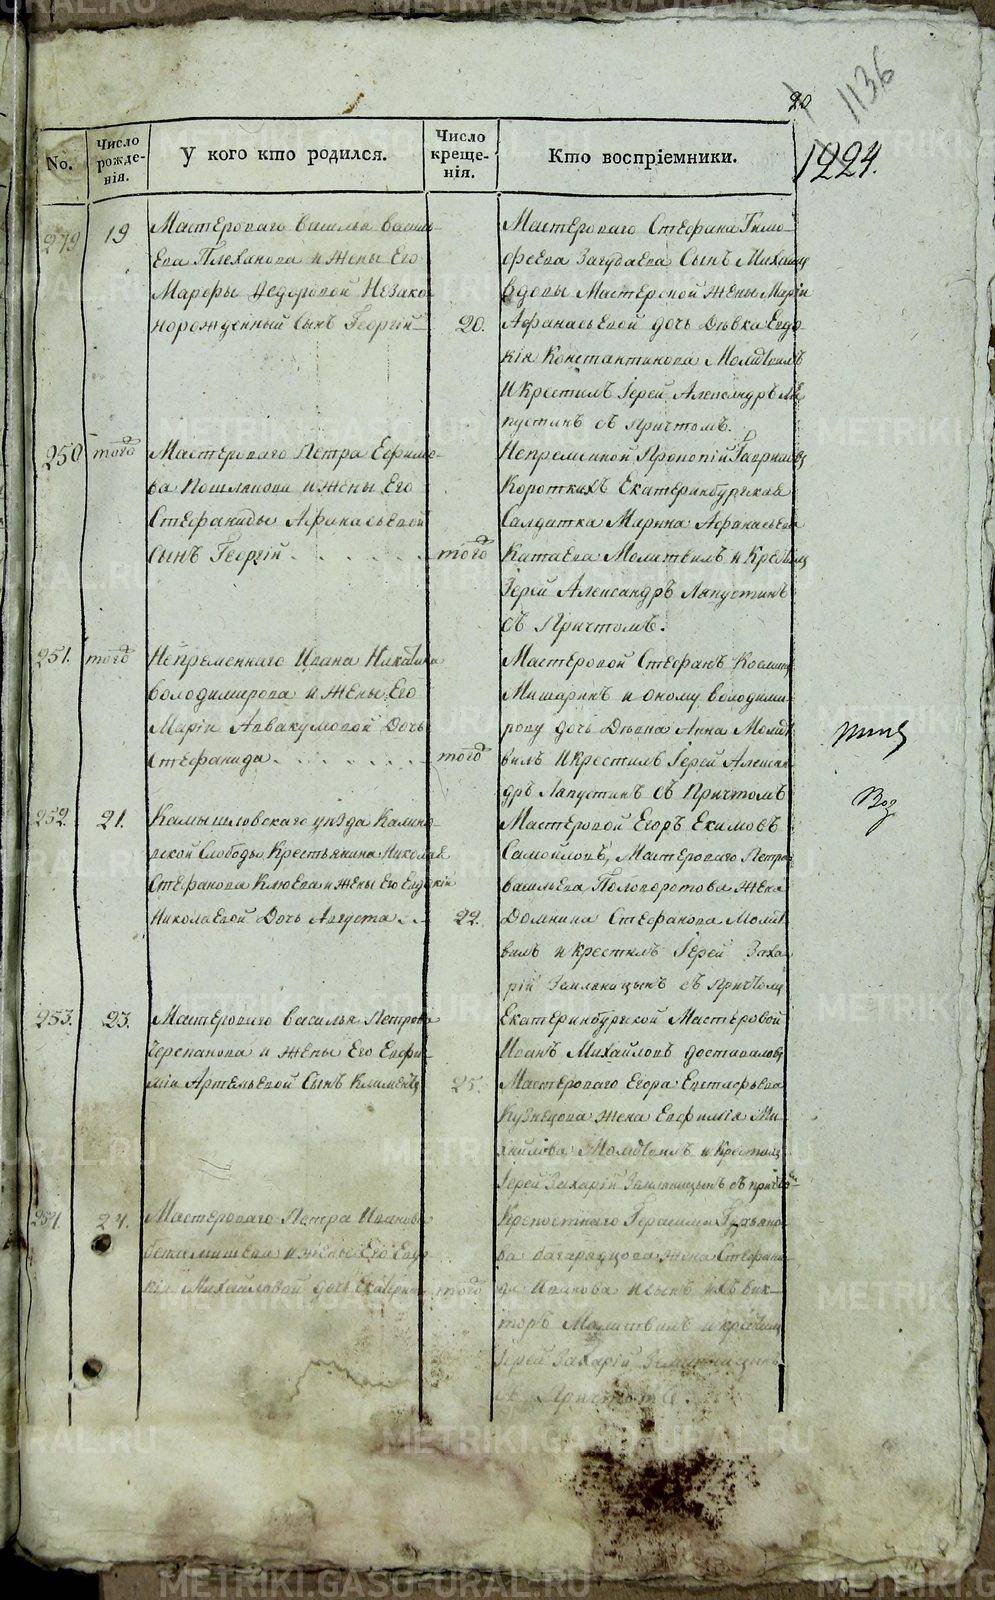 20
1136
1224.
No.
Число рожденія.
У кого кто родился.
Число крещенія.
Кто воспріемники.
249
19
Мастероваго Василья Василь-
ева Плеханова и жены Его
Марфы Федоровой Незако-
норожденный Сынъ Георгій
20.
Мастероваго Стефана Тимо-
феева Загудаева Сынъ Михаил
Вдовы Мастерской жены Маріи
Афанасьевой дочь Дѣвка Евдо-
кія Константинова Молитвилъ
И Крестилъ Іерей Александръ Ла
пустинъ съ Причтомъ.
250
того
Мастероваго Петра Ефимо-
ва Пошлякова и жены Его
Стефаниды Афанасьевой
Сынъ Георгій
того
Непременной Прокопій Гаврилов
Короткихъ Екатеринбургская
Салдатка Марина Афанасьева
Катаева Молитвилъ и Крестилъ
Іерей Александръ Лапустинъ
съ Причтомъ.
251.
того
Непременнаго Ивана Никитина
Володимирова и жены Его
Маріи Аввакумовой Дочь
Стефанида
того
Мастеровой Стефанъ Козмин
Мишаринъ и оному Володими-
рову дочь Девка Анна Молит
вилъ И Крестилъ Іерей Алексан
дръ Лапустинъ съ Причтомъ
252.
21.
Камышловскаго уѣзда Калинов
ской Слободы Крестьянина Николая
Стефанова Клюева и жены Его Евдокіи
Николаевой Дочь Августа
22.
Мастеровой Егоръ Екимовъ
Самойловъ, Мастероваго Петра
Васильева Половоротова жена
Домнина Стефанова Молит
вилъ и крестилъ Іерей Заха
рій Земляницынъ съ Причтом
253.
23.
Мастероваго Василья Петрова
Черепанова и жены Его Евфи-
міи Артемьевой Сынъ Климентъ
25.
Екатеринбургской Мастеровой
Иванъ Михайловъ Доставалов
Мастероваго Егора Евстафьева
Кузнецова жена Евфимія Ми-
хайлова Молитвилъ и Крестилъ
Іерей Захарій Земляницынъ съ причтом
254.
24.
Мастероваго Петра Иванова
Бекамишева и жены Его Евдо-
кіи Михайловой дочь Екатерина
того
Крепостнаго Герасима Гурьяно-
ва Багарядцова жена Стефани
да Иванова и сынъ ихъ Вик-
торъ Молитвилъ и крестилъ
Іерей Захарій Земляницынъ
съ Причтомъ.